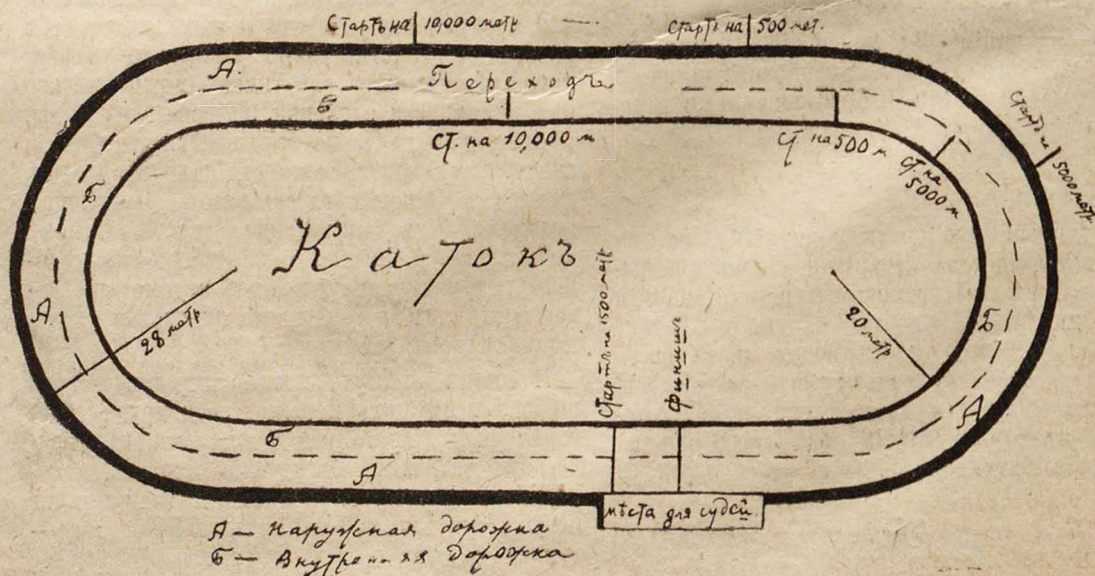 Стартъ на 10,000 метр
Стартъ на 500 мет.
А.
Переходъ
Б
Стартъ на 5000 метр
Ст. на 10,000 м
Ст на 500 м
Ст. на
5000 м
Б
Катокъ
А
28 метр
Стартъ на 1500 метр
Финишъ
20 метр
Б
А
Б
А
мѣста для судей
А — Наружная дорожка
Б — Внутренняя дорожка